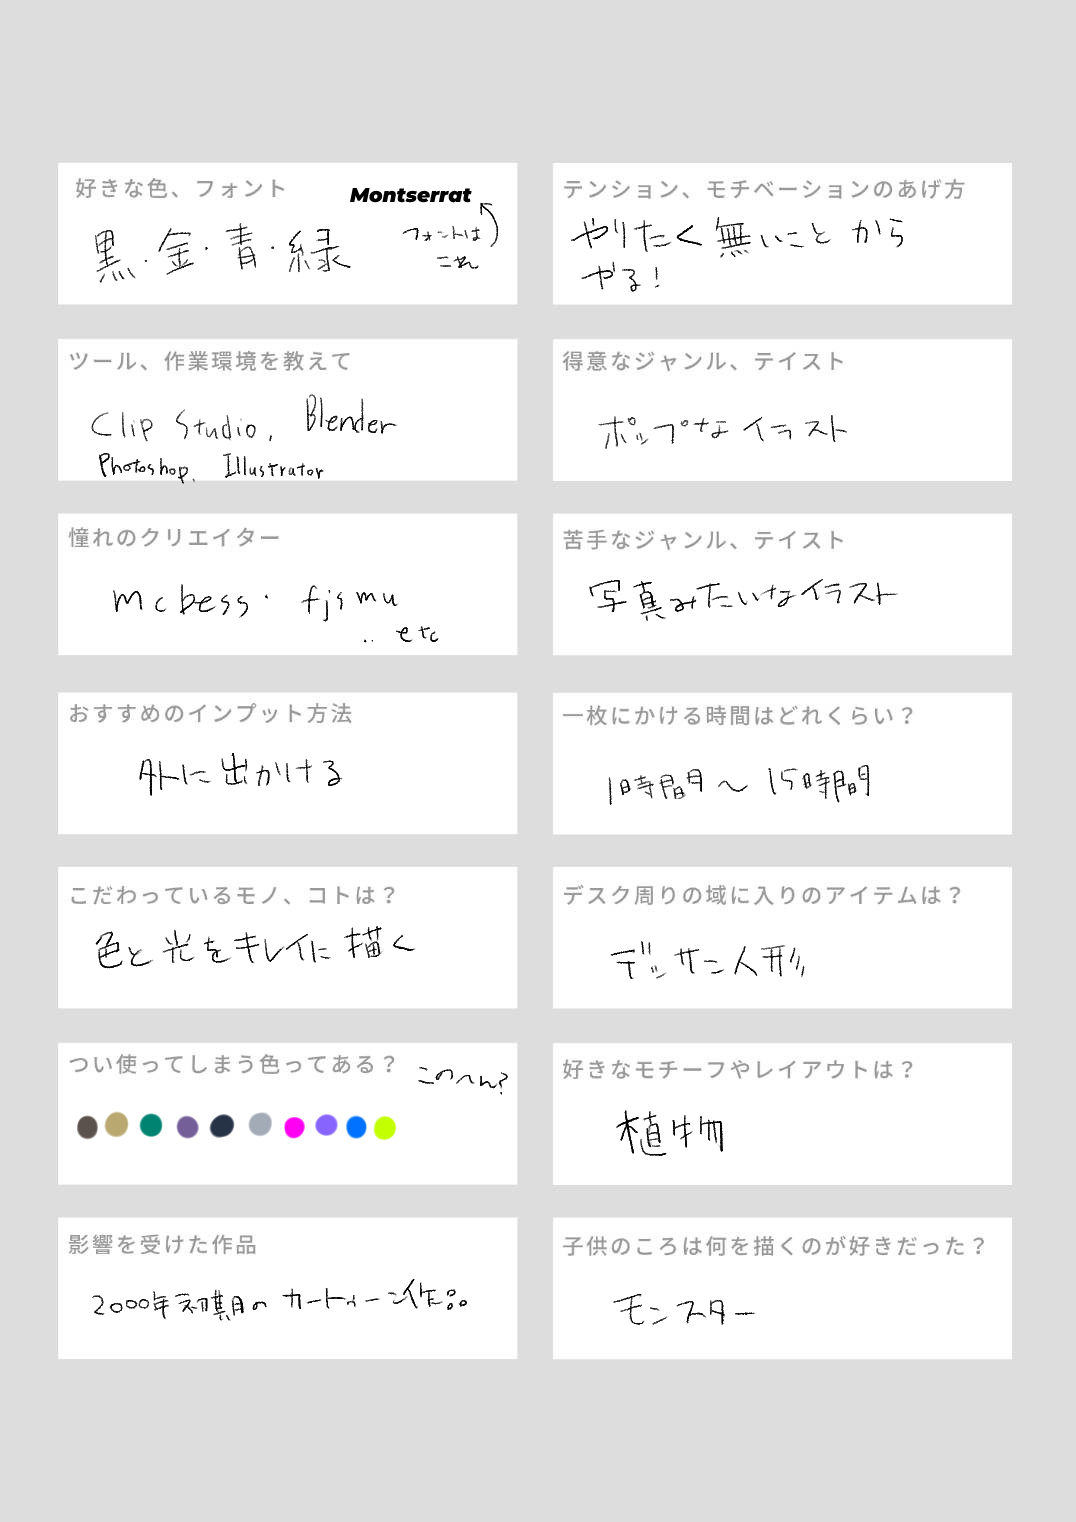 好きな色、フォント
Montserrat
黒・金・青・緑
フォントは
これ
テンション、モチベーションのあげ方
やりたく無いことから
やる！
ツール、作業環境を教えて
Clip Studio, Blender
Photoshop, Illustrator
得意なジャンル、テイスト
ポップなイラスト
憧れのクリエイター
mcbess・fjsmu
.. etc
苦手なジャンル、テイスト
写真みたいなイラスト
おすすめのインプット方法
外に出かける
一枚にかける時間はどれくらい？
1時間〜15時間
こだわっているモノ、コトは？
色と光をキレイに描く
デスク周りの域に入りのアイテムは？
デッサン人形
つい使ってしまう色ってある？
このへん?
好きなモチーフやレイアウトは？
植物
影響を受けた作品
2000年初期のカートゥーン作品
子供のころは何を描くのが好きだった？
モンスター